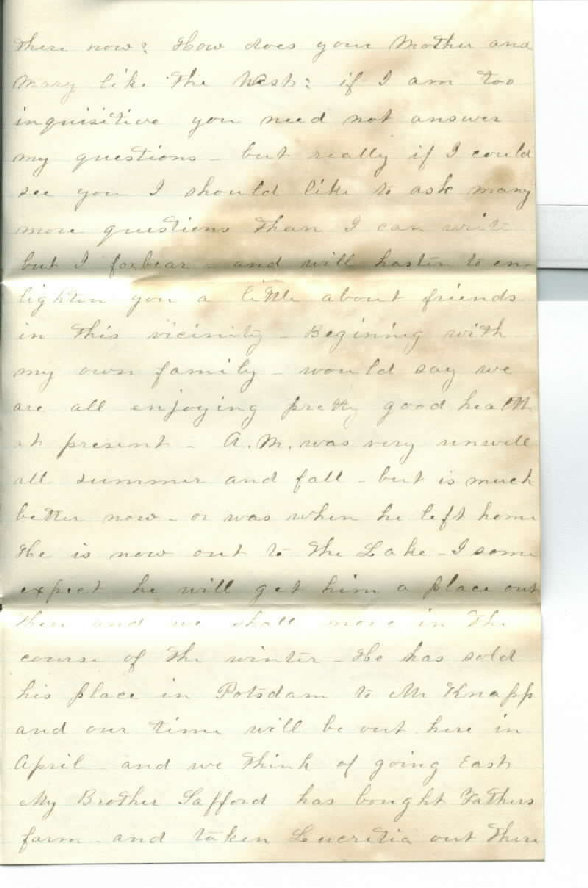 there now? How does your Mother and
Mary like the West? if I am too
inquisitive you need not answer
my questions - but really if I could
see you I should like to ask many
more questions than I can write
but I forbear - and will hasten to en
lighten you a little about friends
in this vicinity - Begining with
my own family - would say we
are all enjoying pretty good health
at present - A.M. was very unwell
all summer and fall - but is much
better now - or was when he left home
He is now out to the Lake - I some
expect he will get him a place out
there and we shall move in the
course of the winter - He has sold
his place in Potsdam to Mr Knapp
and our time will be out here in
April - and we think of going East
My Brother Safford has bought Fathers
farm - and taken Lucretia out there